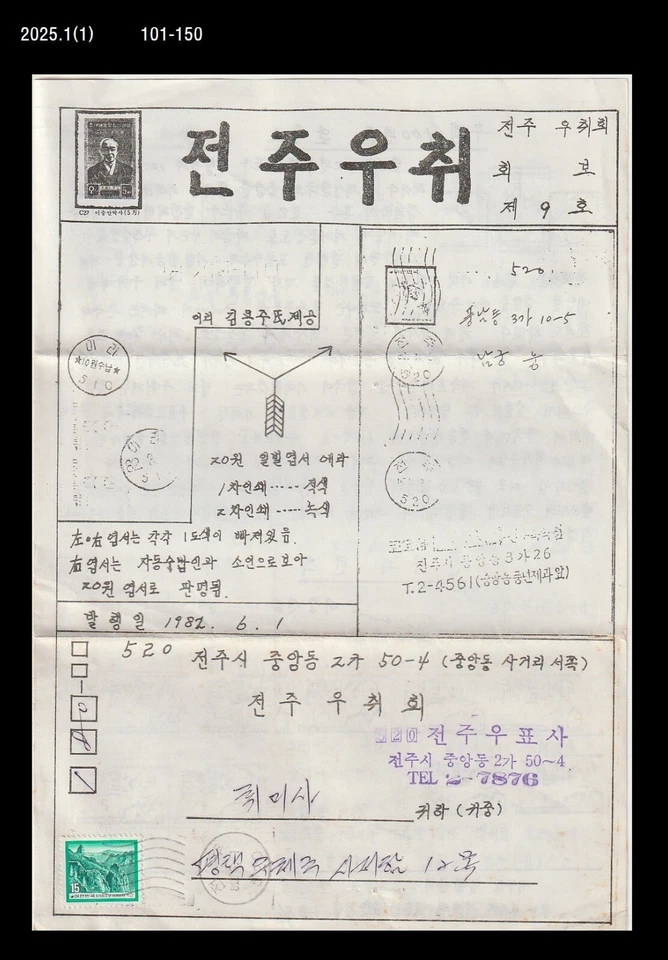 2025.1(1) 101-150
전주우취
전주 우취회
회 보
제 9 호
C27 이승만박사(5차)
이리 김봉주氏제공
이리
★10원수납★
510
20원 일빈엽서 에라
1차인쇄 ····· 적색
2차인쇄 ····· 녹색
左·右엽서는 각각 1도색이 빠져있음.
右엽서는 자동숫법인과 소인으로 보아
20원 엽서로 판명됨.
발행일 1982. 6. 1
520
3가 10-5
520
520
전주시 중앙동 3가 26
T.2-4561
520 전주시 중앙동 2가 50-4 (중앙동 사거리 서쪽)
전주 우취회
520 전주우표사
전주시 중앙동 2가 50~4
TEL 2-7876
취미사
귀하 (귀중)
평택 우체국 사서함 12호
15